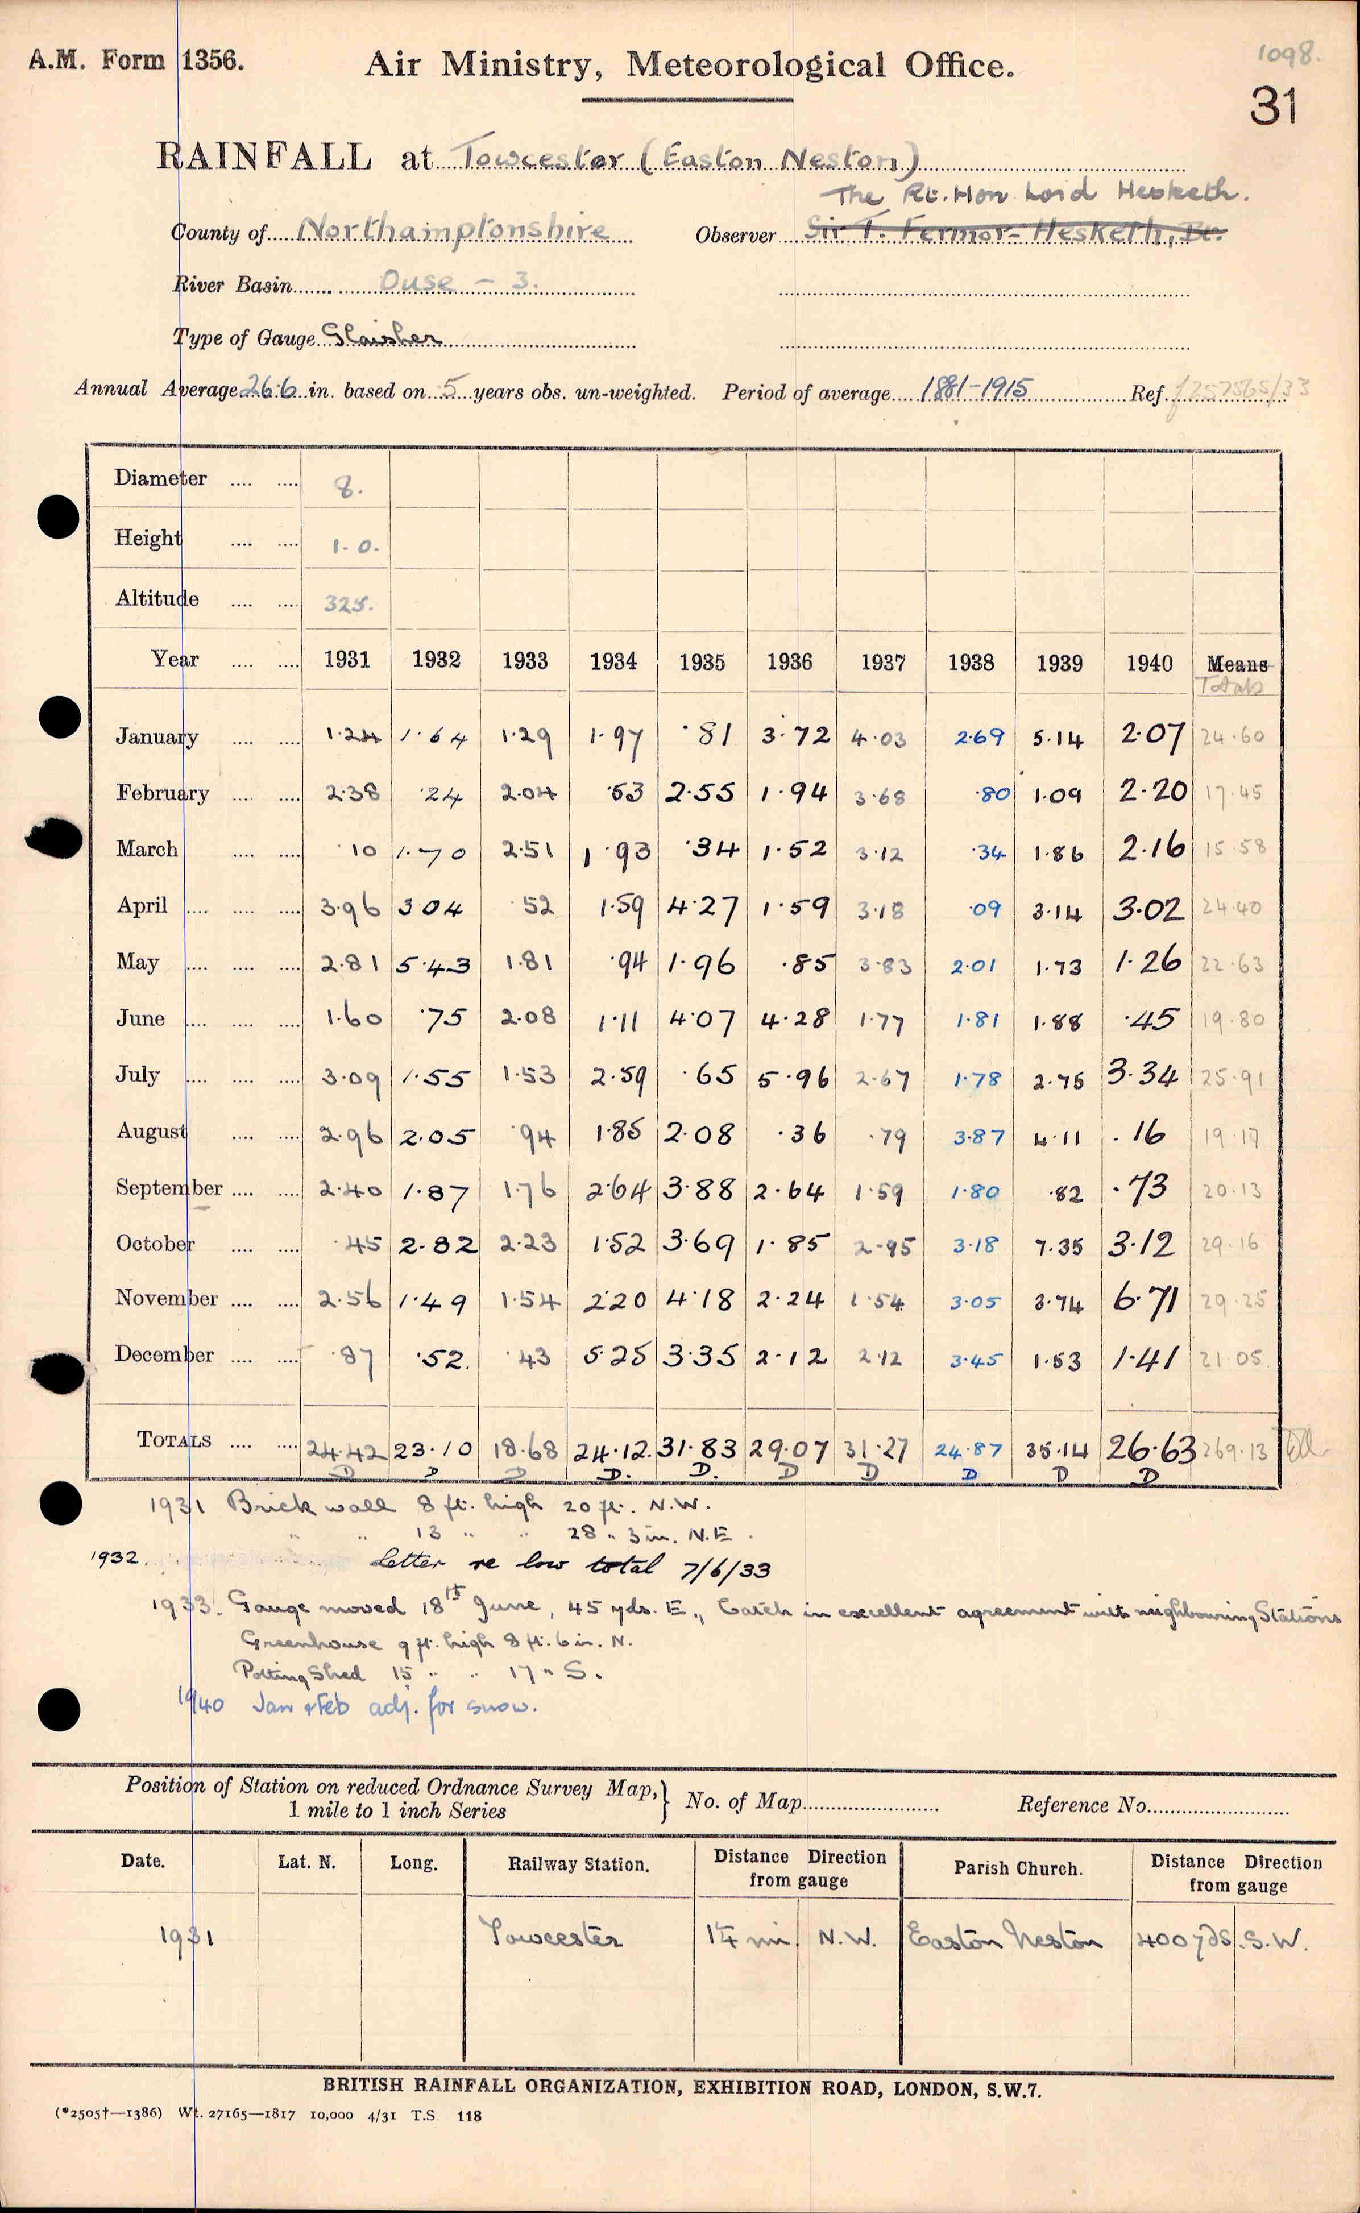 1098.
A.M. Form 1356. Air Ministry, Meteorological Office.
31
RAINFALL at Towcester (Easton Neston)
The Rt. Hon. Lord Hesketh.
County of Northamptonshire Observer Sir T. Fermor-Hesketh, Bt.
River Basin Ouse - 3.
Type of Gauge Glaisher
Annual Average 26.6 in. based on 5 years obs. un-weighted. Period of average 1881-1915 Ref.
Diameter 8.
Height 1.0.
Altitude 325.
Year 1931 1932 1933 1934 1935 1936 1937 1938 1939 1940 Means
Totals
January 1.24 1.64 1.29 1.97 .81 3.72 4.03 2.69 5.14 2.07 24.60
February 2.38 .24 2.04 .53 2.55 1.94 3.68 .80 1.09 2.20 17.45
March .10 1.70 2.51 1.93 .34 1.52 3.12 .34 1.86 2.16 15.58
April 3.96 3.04 .52 1.59 4.27 1.59 3.18 .09 3.14 3.02 24.40
May 2.81 5.43 1.81 .94 1.96 .85 3.83 2.01 1.73 1.26 22.63
June 1.60 .75 2.08 1.11 4.07 4.28 1.77 1.81 1.88 .45 19.80
July 3.09 1.55 1.53 2.59 .65 5.96 2.67 1.78 2.75 3.34 25.91
August 2.96 2.05 .94 1.85 2.08 .36 .79 3.87 4.11 .16 19.17
September 2.40 1.87 1.76 2.64 3.88 2.64 1.59 1.80 .82 .73 20.13
October .45 2.82 2.23 1.52 3.69 1.85 2.95 3.18 7.35 3.12 29.16
November 2.56 1.49 1.54 2.20 4.18 2.24 1.54 3.05 3.74 6.71 29.25
December .87 .52 .43 5.25 3.35 2.12 2.12 3.45 1.53 1.41 21.05
TOTALS 24.42 23.10 18.68 24.12 31.83 29.07 31.27 24.87 35.14 26.63 269.13
D D D D. D. D D D D D
1931 Brick wall 8 ft. high 20 ft. N.W.
" " 13 " " 28 " 3 in. N.E.
1932. Letter re low total 7/6/33
1933. Gauge moved 18th June, 45 yds. E., Catch in excellent agreement with neighbouring Stations
Greenhouse 9 ft. high 8 ft. 6 in. N.
Potting Shed 15 " " 17 " S.
1940 Jan & Feb adj. for snow.
Position of Station on reduced Ordnance Survey Map, 1 mile to 1 inch Series } No. of Map Reference No.
Date. Lat. N. Long. Railway Station. Distance Direction from gauge Parish Church. Distance Direction from gauge
1931 Towcester 1¼ mi. N.W. Easton Neston 400 yds. S.W.
BRITISH RAINFALL ORGANIZATION, EXHIBITION ROAD, LONDON, S.W.7.
(*2505†—1386) Wt. 27165—1817 10,000 4/31 T.S 118